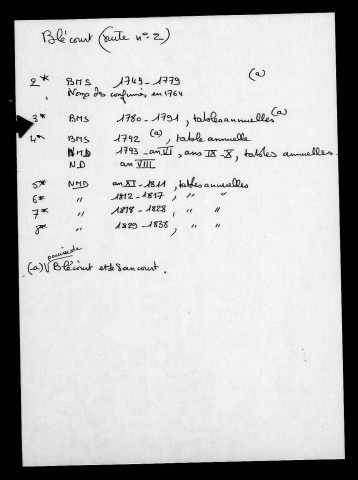 Blécourt (suite n°: 2)
2* BMS 1749-1779 (a)
Noms des confirmés en 1764
3* BMS 1780-1791, tables annuelles (a)
4* BMS 1792 (a), table annuelle
NMD 1793-an VI, ans IX-X, tables annuelles.
ND an VIII
5* NMD an XI-1811, tables annuelles
6* " 1812-1817, " "
7* " 1818-1828, " "
8* " 1829-1838, " "
paroisse de
(a) Blécourt et de Sancourt.